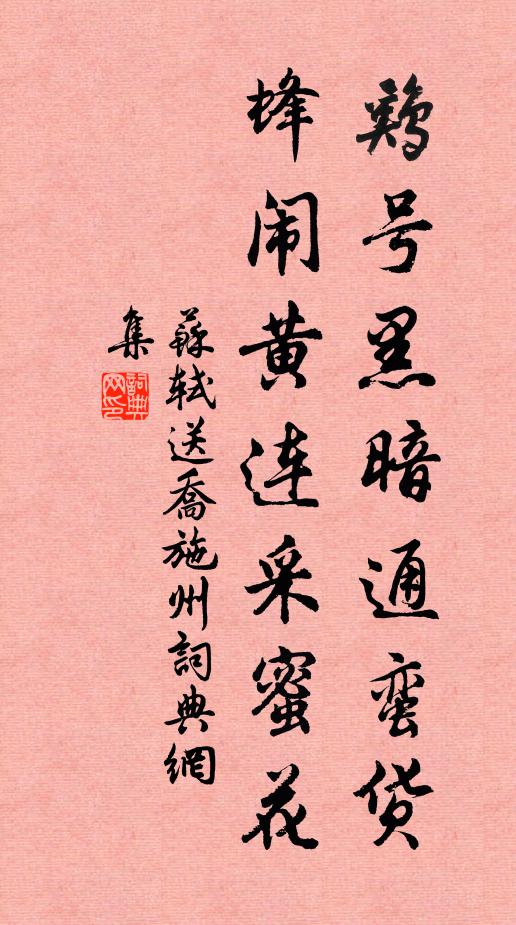 鷄号黑暗通蛮货
蜂闹黄连采蜜花
蘇軾送喬施州詞典網
集
詞典网印